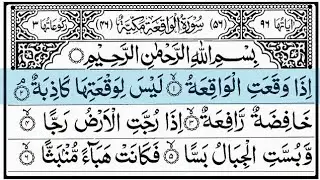 اٰیَاتُهَا ٩٦ (٥٦) سُوْرَةُ الْوَاقِعَةِ مَكِّيَّةٌ (٤٦) رُكُوْعَاتُهَا ٣
بِسْمِ اللّٰهِ الرَّحْمٰنِ الرَّحِيْمِ
اِذَا وَقَعَتِ الْوَاقِعَةُ ۙ‏﴿١﴾ لَيْسَ لِوَقْعَتِهَا كَاذِبَةٌ ۘ‏﴿٢﴾
خَافِضَةٌ رَّافِعَةٌ ۙ‏﴿٣﴾ اِذَا رُجَّتِ الْاَرْضُ رَجًّا ۙ‏﴿٤﴾
وَّبُسَّتِ الْجِبَالُ بَسًّا ۙ‏﴿٥﴾ فَكَانَتْ هَبَآءً مُّنْۢبَثًّا ۙ‏﴿٦﴾